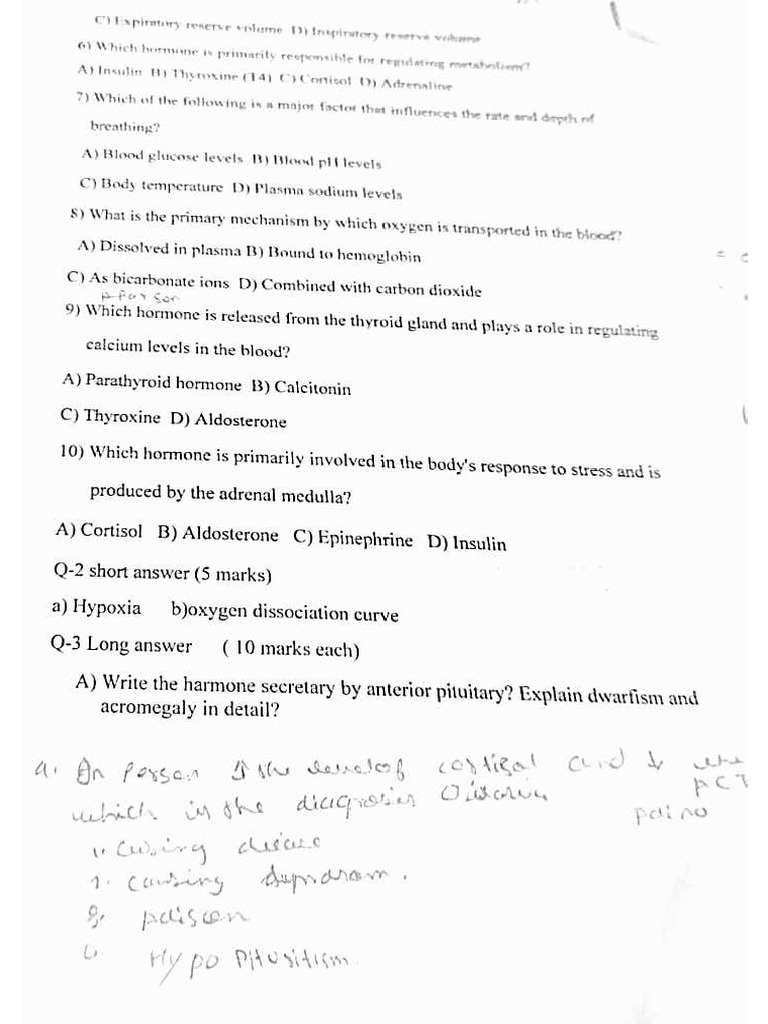 C) Expiratory reserve volume D) Inspiratory reserve volume
6) Which hormone is primarily responsible for regulating metabolism?
A) Insulin B) Thyroxine (T4) C) Cortisol D) Adrenaline
7) Which of the following is a major factor that influences the rate and depth of
breathing?
A) Blood glucose levels B) Blood pH levels
C) Body temperature D) Plasma sodium levels
8) What is the primary mechanism by which oxygen is transported in the blood?
A) Dissolved in plasma B) Bound to hemoglobin
C) As bicarbonate ions D) Combined with carbon dioxide
9) Which hormone is released from the thyroid gland and plays a role in regulating
calcium levels in the blood?
A) Parathyroid hormone B) Calcitonin
C) Thyroxine D) Aldosterone
10) Which hormone is primarily involved in the body's response to stress and is
produced by the adrenal medulla?
A) Cortisol B) Aldosterone C) Epinephrine D) Insulin
Q-2 short answer (5 marks)
a) Hypoxia b)oxygen dissociation curve
Q-3 Long answer ( 10 marks each)
A) Write the harmone secretary by anterior pituitary? Explain dwarfism and
acromegaly in detail?
which is the
Hypo